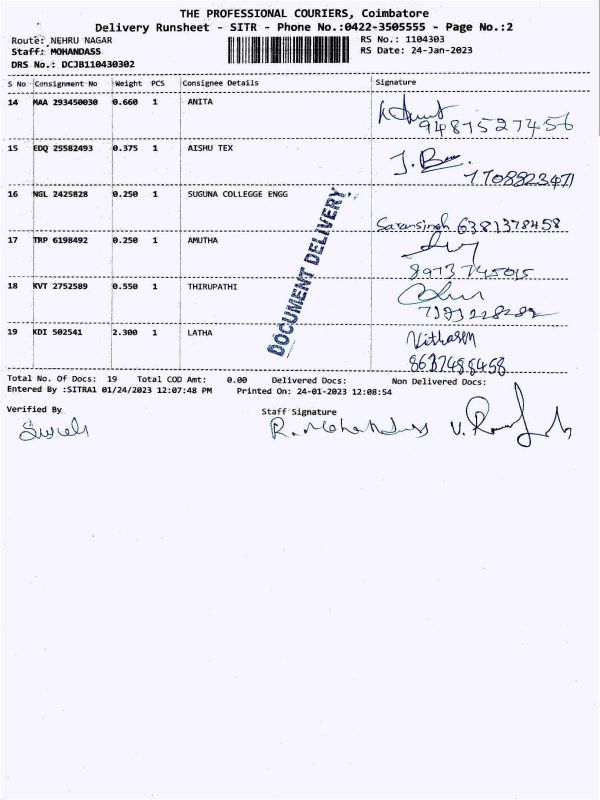 THE PROFESSIONAL COURIERS, Coimbatore
Delivery Runsheet - SITR - Phone No.:0422-3505555 - Page No.:2
Route: NEHRU NAGAR RS No.: 1104303
Staff: MOHANDASS RS Date: 24-Jan-2023
DRS No.: DCJB110430302
S No Consignment No Weight PCS Consignee Details Signature
14 MAA 293450030 0.660 1 ANITA
9487527456
15 EDQ 25582493 0.375 1 AISHU TEX
7708823471
16 NGL 2425828 0.250 1 SUGUNA COLLEGGE ENGG
Saransingh 6381378458
17 TRP 6198492 0.250 1 AMUTHA
8973745015
18 KVT 2752589 0.550 1 THIRUPATHI
19 KDI 502541 2.300 1 LATHA
8637488458
DOCUMENT DELIVERY
Total No. Of Docs: 19 Total COD Amt: 0.00 Delivered Docs: Non Delivered Docs:
Entered By :SITRA1 01/24/2023 12:07:48 PM Printed On: 24-01-2023 12:08:54
Verified By Staff Signature
R. Mohandass